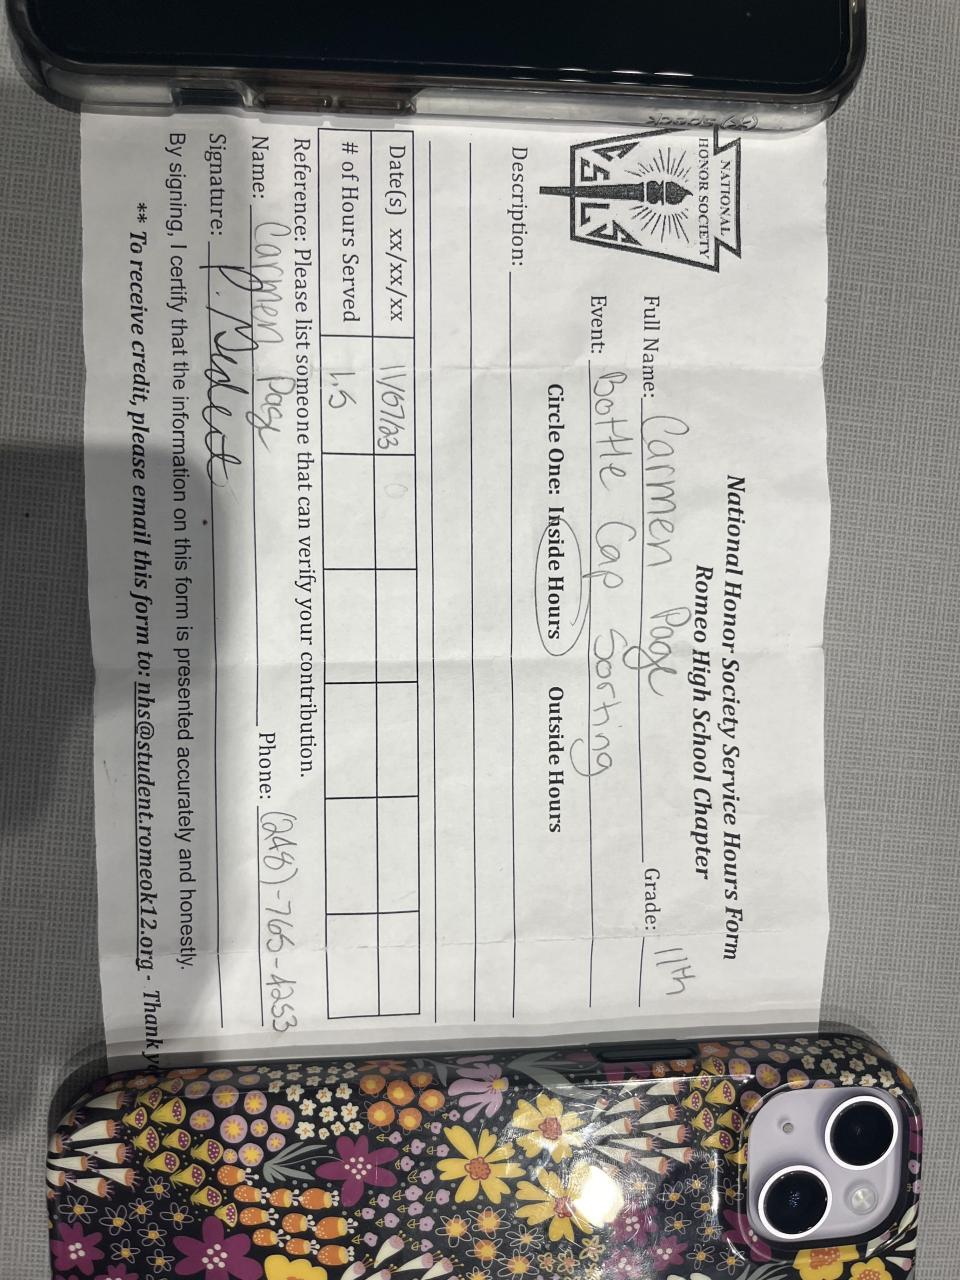 National Honor Society Service Hours Form
Romeo High School Chapter
NATIONAL
HONOR SOCIETY
C S L S
Full Name: Carmen Page Grade: 11th
Event: Bottle Cap Sorting
Circle One: Inside Hours Outside Hours
Description:
Date(s) xx/xx/xx 11/07/23
# of Hours Served 1.5
Reference: Please list someone that can verify your contribution.
Name: Carmen Page Phone: (248)-765-4253
Signature:
By signing, I certify that the information on this form is presented accurately and honestly.
** To receive credit, please email this form to: nhs@student.romeok12.org - Thank
speck